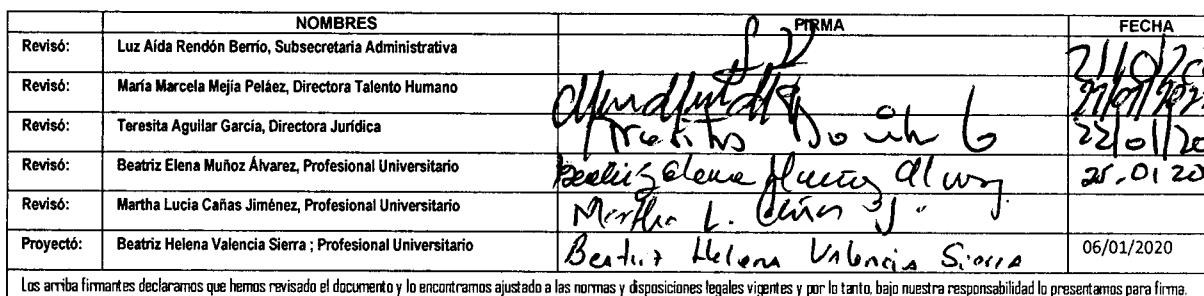 NOMBRES FIRMA FECHA
Revisó: Luz Aída Rendón Berrío, Subsecretaria Administrativa
Revisó: María Marcela Mejía Peláez, Directora Talento Humano
Revisó: Teresita Aguilar García, Directora Jurídica 22/01/20
Revisó: Beatriz Elena Muñoz Álvarez, Profesional Universitario Beatriz Elena Muñoz Alvarez 25.01 20
Revisó: Martha Lucia Cañas Jiménez, Profesional Universitario Martha L. Cañas J.
Proyectó: Beatriz Helena Valencia Sierra ; Profesional Universitario Beatriz Helena Valencia Sierra 06/01/2020
Los arriba firmantes declaramos que hemos revisado el documento y lo encontramos ajustado a las normas y disposiciones legales vigentes y por lo tanto, bajo nuestra responsabilidad lo presentamos para firma.